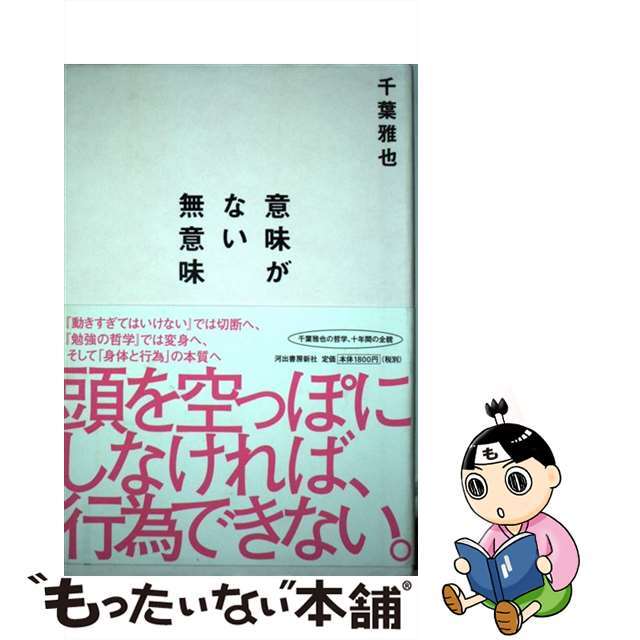 千葉雅也
意味が
ない
無意味
『動きすぎてはいけない』では切断へ、
『勉強の哲学』では変身へ、
そして「身体と行為」の本質へ
千葉雅也の哲学、十年間の全貌
河出書房新社 定価 本体1800円(税別)
頭を空っぽに
しなければ、
行為できない。
も
"もったいない"本舗®